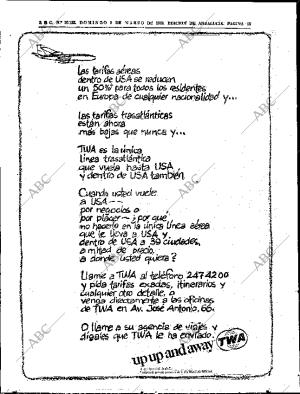 A B C. DOMINGO 9 DE MARZO DE 1969. EDICION DE ANDALUCIA. PAGINA
Las tarifas aéreas
dentro de USA se reducen
un 50% para todos los residentes
en Europa de cualquier nacionalidad y...
las tarifas trasatlánticas
están ahora
más bajas que nunca y...
TWA es la única
línea trasatlántica
que vuela hasta USA,
y dentro de USA también.
Cuando usted vuele
a USA--
por negocios o
por placer- ¿por qué
no hacerlo en la única línea aérea
que le lleva a USA y
dentro de USA a 39 ciudades,
a mitad de precio,
a donde usted quiera?
Llame a TWA al teléfono 247 42 00
y pida tarifas exactas, itinerarios y
cualquier otro detalle, o
venga directamente a las oficinas
de TWA en Av. José Antonio, 66.
O llame a su agencia de viajes y
dígales que TWA le ha enviado.
up up and away TWA